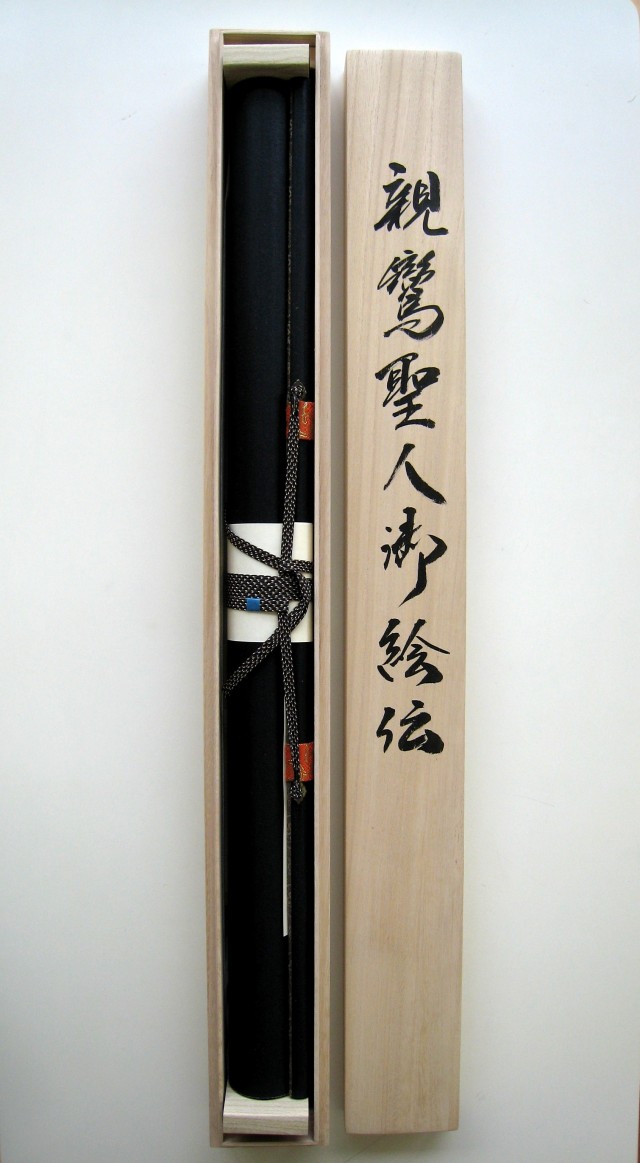 親鸞聖人御絵伝